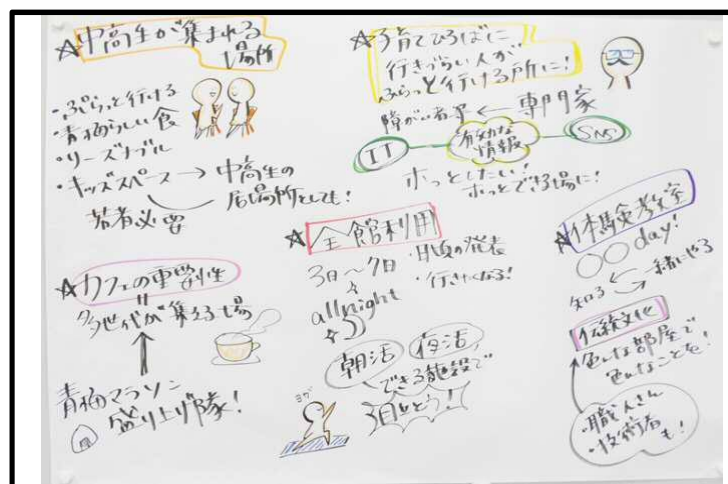 ☆中高生が集まれる
場所
・ぷらっと行ける
・青梅らしい食
・リーズナブル
・キッズスペース → 中高生の
居場所としても!
若者必要
☆カフェの重要性
多世代が集える場
青梅マラソン
盛り上げ隊!
☆子育てひろばに
行きづらい人が
ふらっと行ける所に!
障がい者 ← 専門家
IT
有効な
情報
SNS
ホッとしたい!
ホッとできる場に!
☆全館利用
3日〜7日
all night
・日頃の発表
・行きたくなる!
朝活
夜活
できる施設で
ヨガ
3日とどう!
☆体験教室
〇〇day!
知る
一緒にやる
伝統文化
色んな部屋で
色んなことを!
・職人さん
・技術者
も!